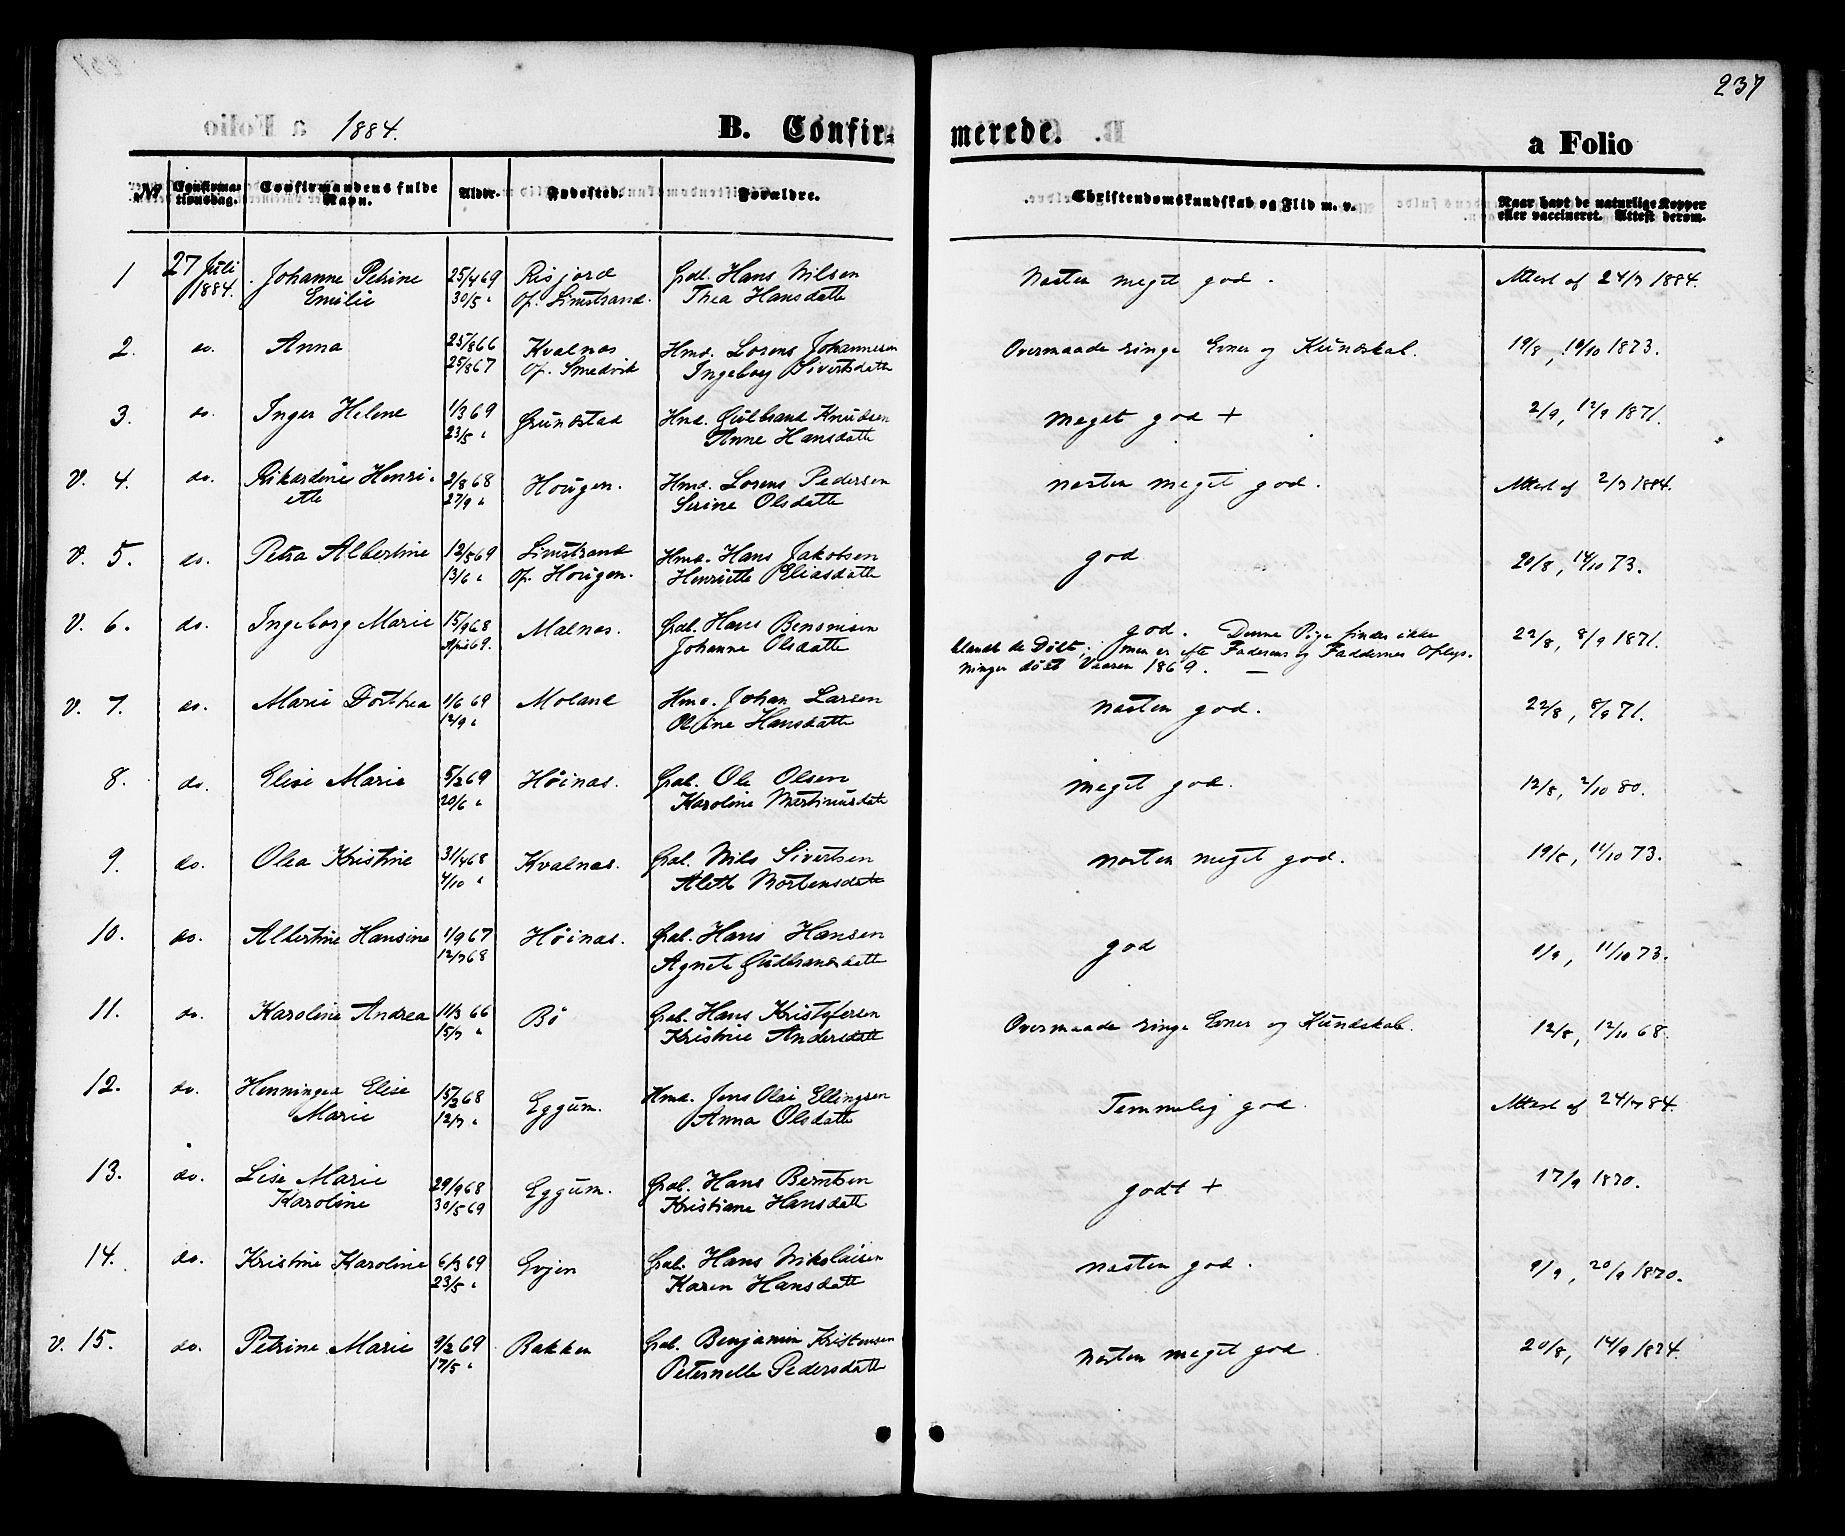 237
1884.
B. Confir-
merede.
a Folio
No.
Confirma-
tionsdag.
Confirmandens fulde
Navn.
Alder.
Fødested.
Forældre.
Christendomskundskab og Flid m. v.
Naar havt de naturlige Kopper
eller vaccineret. Attest derom.
1 27 Juli Johanne Petrine 25/4 69 Risjord Gbl. Hans Nilsen Næsten meget god. Attest af 24/7 1884.
1884. Emilie 30/5 " Op. Limstrand. Thea Hansdatt
2. do. Anna 25/8 66 Kvalnæs Hmd. Lorens Johannesen Overmaade ringe Evner og Kundskab. 19/8, 19/10 1873.
25/8 67 Op. Smedvik Ingeborg Sivertsdatt
3. do. Inger Helene 1/3 69 Grundstad Hmd. Gulbrand Knudsen Meget god + 2/9, 12/9 1871.
23/5 " Anne Hansdatt
V. 4. do. Rikardine Henri- 2/8 68 Hougen. Hmd. Lorens Pedersen næsten meget god. Attest af 2/7 1884.
ette 27/9 " Serine Olsdatt
V. 5. do. Petra Albertine 12/5 69 Limstrand Hmd. Hans Jakobsen god 20/8, 14/10 73.
13/6 " Op. Hougen. Henriette Eliasdatt
V. 6. do. Ingeborg Marie 15/9 68 Malnæs. Gbl. Hans Bensvisen god. Denne Pige findes ikke 22/8, 8/9 1871.
April 69. Johanne Olsdatt blandt de Døbte, men er eft Faderens og Faddernes Oplys-
ninger døbt Vaaren 1869. —
V. 7. do. Marie Dorthea 1/6 69 Moland Hmd. Johan Larsen næsten god. 22/8, 8/9 71.
12/9 " Oline Hansdatt
8. do. Elise Marie 5/2 69 Høinæs. Gbl. Ole Olsen meget god. 12/8, 2/10 80.
20/6 " Karoline Martinusdatt
9. do. Olea Kristine 31/4 68 Kvalnæs. Gbl. Nils Sivertsen næsten meget god. 19/8, 11/10 73.
4/10 " Aleth Mortensdatt
10. do. Albertine Hansine 1/9 67 Høinæs. Gbl. Hans Hansen god 1/9, 11/10 73.
12/7 68 Agnete Gudbrandsdatt
11. do. Karoline Andrea 11/3 66 Bø Gbl. Hans Kristofersen Overmaade ringe Evner og Kundskab. 12/8, 12/10 68.
15/7 " Kristine Andersdatt
12. do. Henningea Elise 15/2 68 Eggum. Hmd. Jens Olai Ellingsen Temmelig god. Attest af 24/7 84.
Marie 12/7 " Anna Olsdatt
13. do. Lise Marie 29/9 68 Eggum. Gbl. Hans Berntsen godt + 17/9 1870.
Karoline 30/5 69 Kristiane Hansdatt
14. do. Kristine Karoline 6/3 69 Evjen Gbl. Hans Nikolaisen næsten god. 9/9, 20/9 1870.
23/5 " Karen Hansdatt
V. 15. do. Petrine Marie 9/2 69 Bakken Gbl. Benjamin Kristensen næsten meget god. 20/8, 14/9 1874.
17/5 " Peternelle Pedersdatt